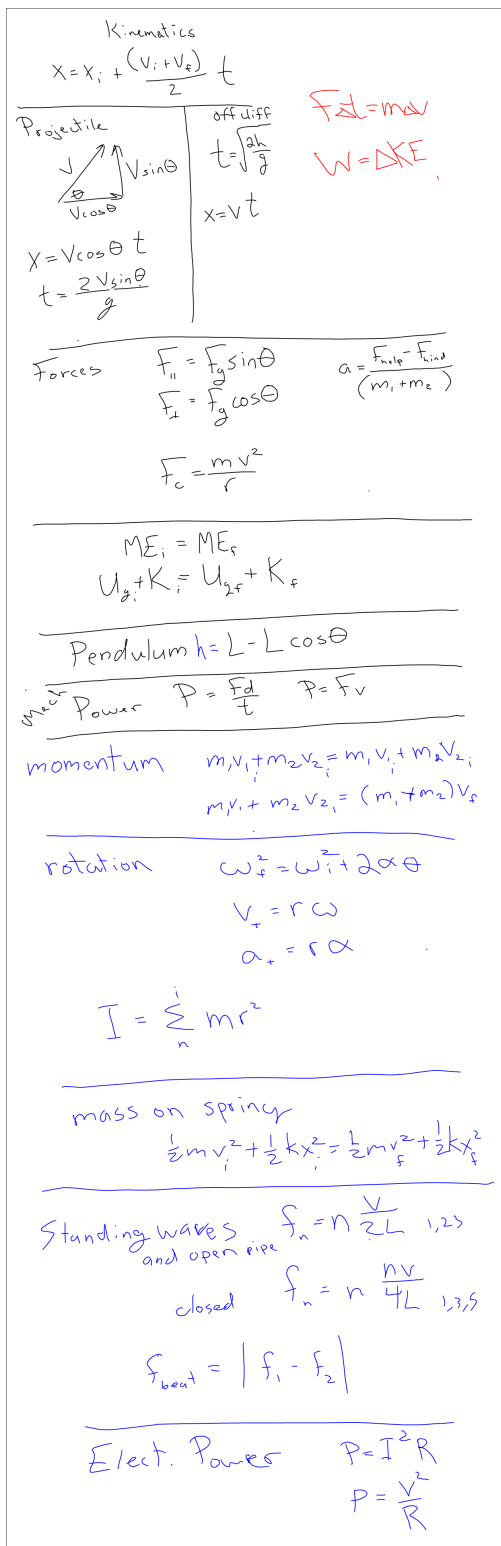 Kinematics
x = xᵢ + (Vᵢ + V_f)/2 t
Projectile
V
V sinθ
θ
V cosθ
x = V cosθ t
t = 2 V sinθ / g
off cliff
t = √(2h/g)
x = v t
FΔt = mΔv
W = ΔKE
Forces
F_∥ = F_g sinθ
F_⊥ = F_g cosθ
a = (F_help - F_hind) / (m₁ + m₂)
F_c = m v² / r
MEᵢ = ME_f
U_gᵢ + Kᵢ = U_gf + K_f
Pendulum h = L - L cosθ
mech Power P = Fd/t P = Fv
momentum m₁v₁ᵢ + m₂v₂ᵢ = m₁v₁ᵢ + m₂v₂ᵢ
m₁v₁ + m₂v₂ᵢ = (m₁ + m₂)v_f
rotation ω_f² = ωᵢ² + 2αθ
v_T = r ω
a_T = r α
I = Σ mr²
i
n
mass on spring
½mvᵢ² + ½kxᵢ² = ½mv_f² + ½kx_f²
Standing waves f_n = n V/2L 1,23
and open pipe
closed f_n = n nv/4L 1,3,5
f_beat = | f₁ - f₂ |
Elect. Power P = I²R
P = V²/R